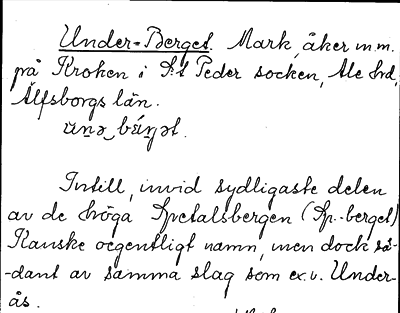 Under-Berget. Mark, åker m.m.
på Kroken i S:t Peder socken, Ale hd,
Älfsborgs län.
ùnə bǽŋət.
Intill, invid sydligaste delen
av de höga Spetalsbergen (Sp.-berget)
Kanske oegentligt namn, men dock så-
-dant av samma slag som ex.v. Under-
ås.